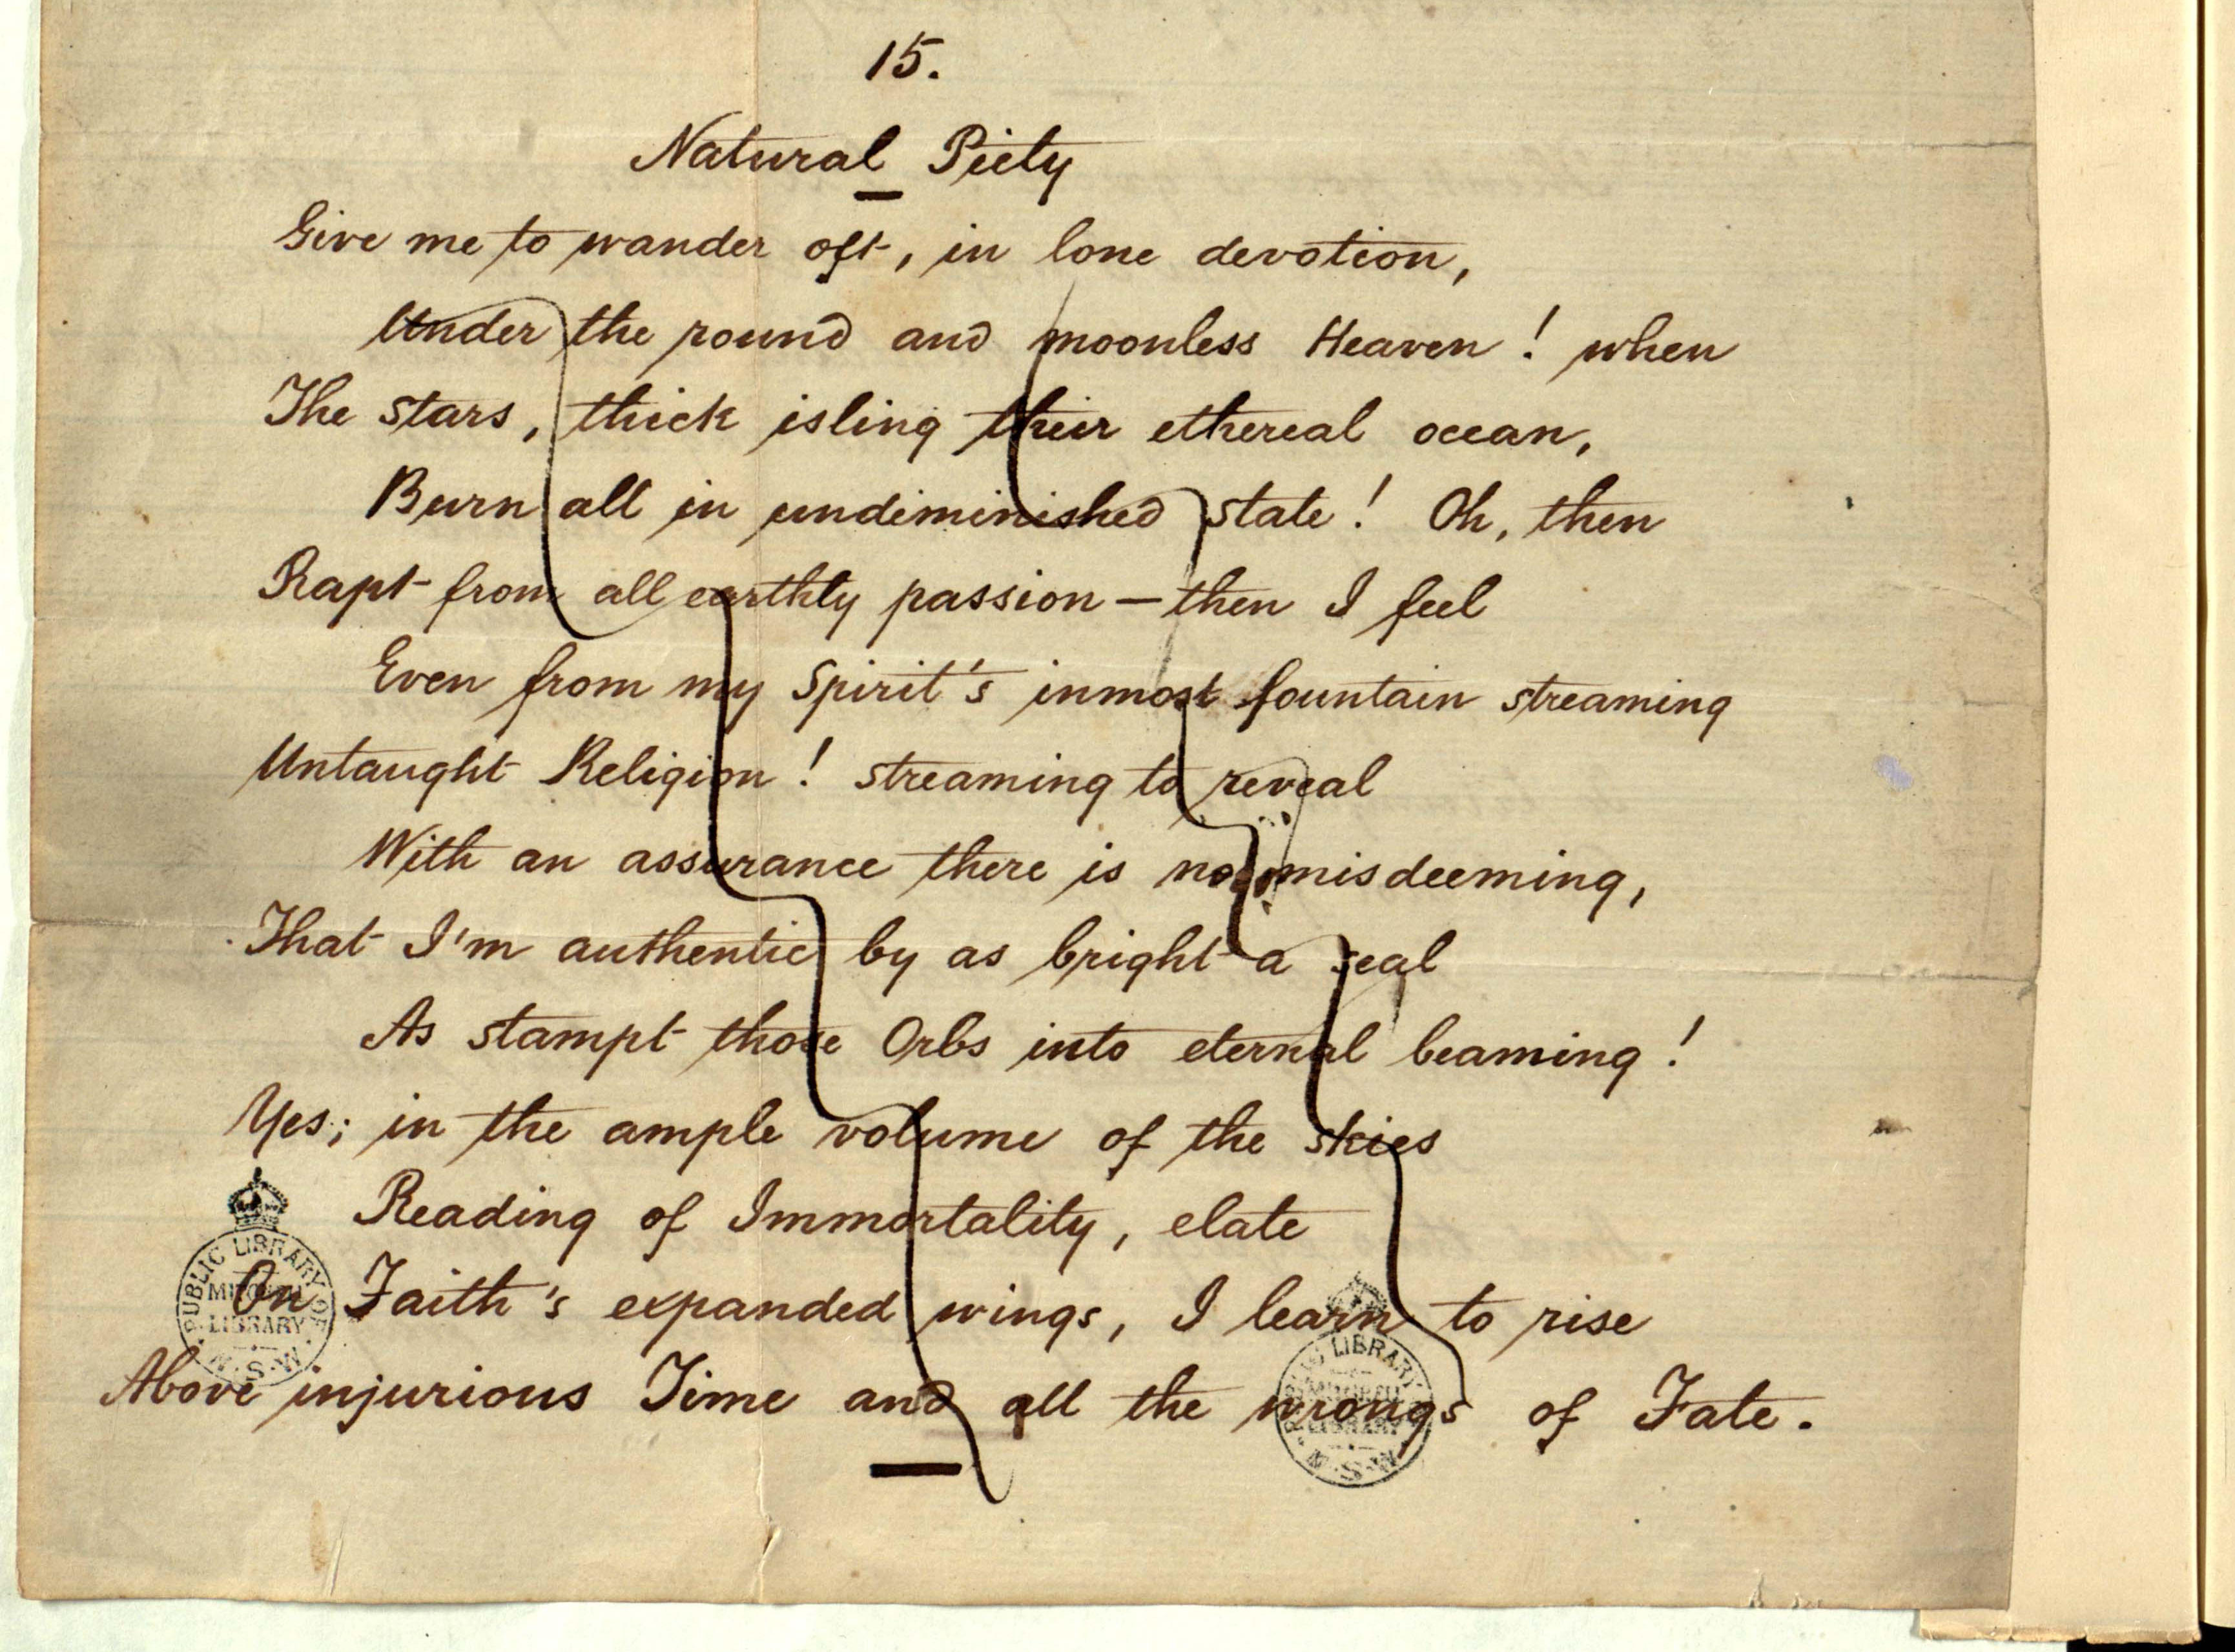 15.
Natural Piety
Give me to wander oft, in lone devotion,
Under the round and moonless Heaven! when
The stars, thick isling their ethereal ocean,
Burn all in undiminished state! Oh, then
Rapt from all earthly passion — then I feel
Even from my Spirit's inmost fountain streaming
Untaught Religion! streaming to reveal
With an assurance there is no misdeeming,
That I'm authentic by as bright a seal
As stampt those Orbs into eternal beaming!
Yes; in the ample volume of the skies
Reading of Immortality, elate
On Faith's expanded wings, I learn to rise
Above injurious Time and all the wrongs of Fate.
PUBLIC LIBRARY OF N.S.W.
MITCHELL LIBRARY
PUBLIC LIBRARY OF N.S.W.
MITCHELL LIBRARY